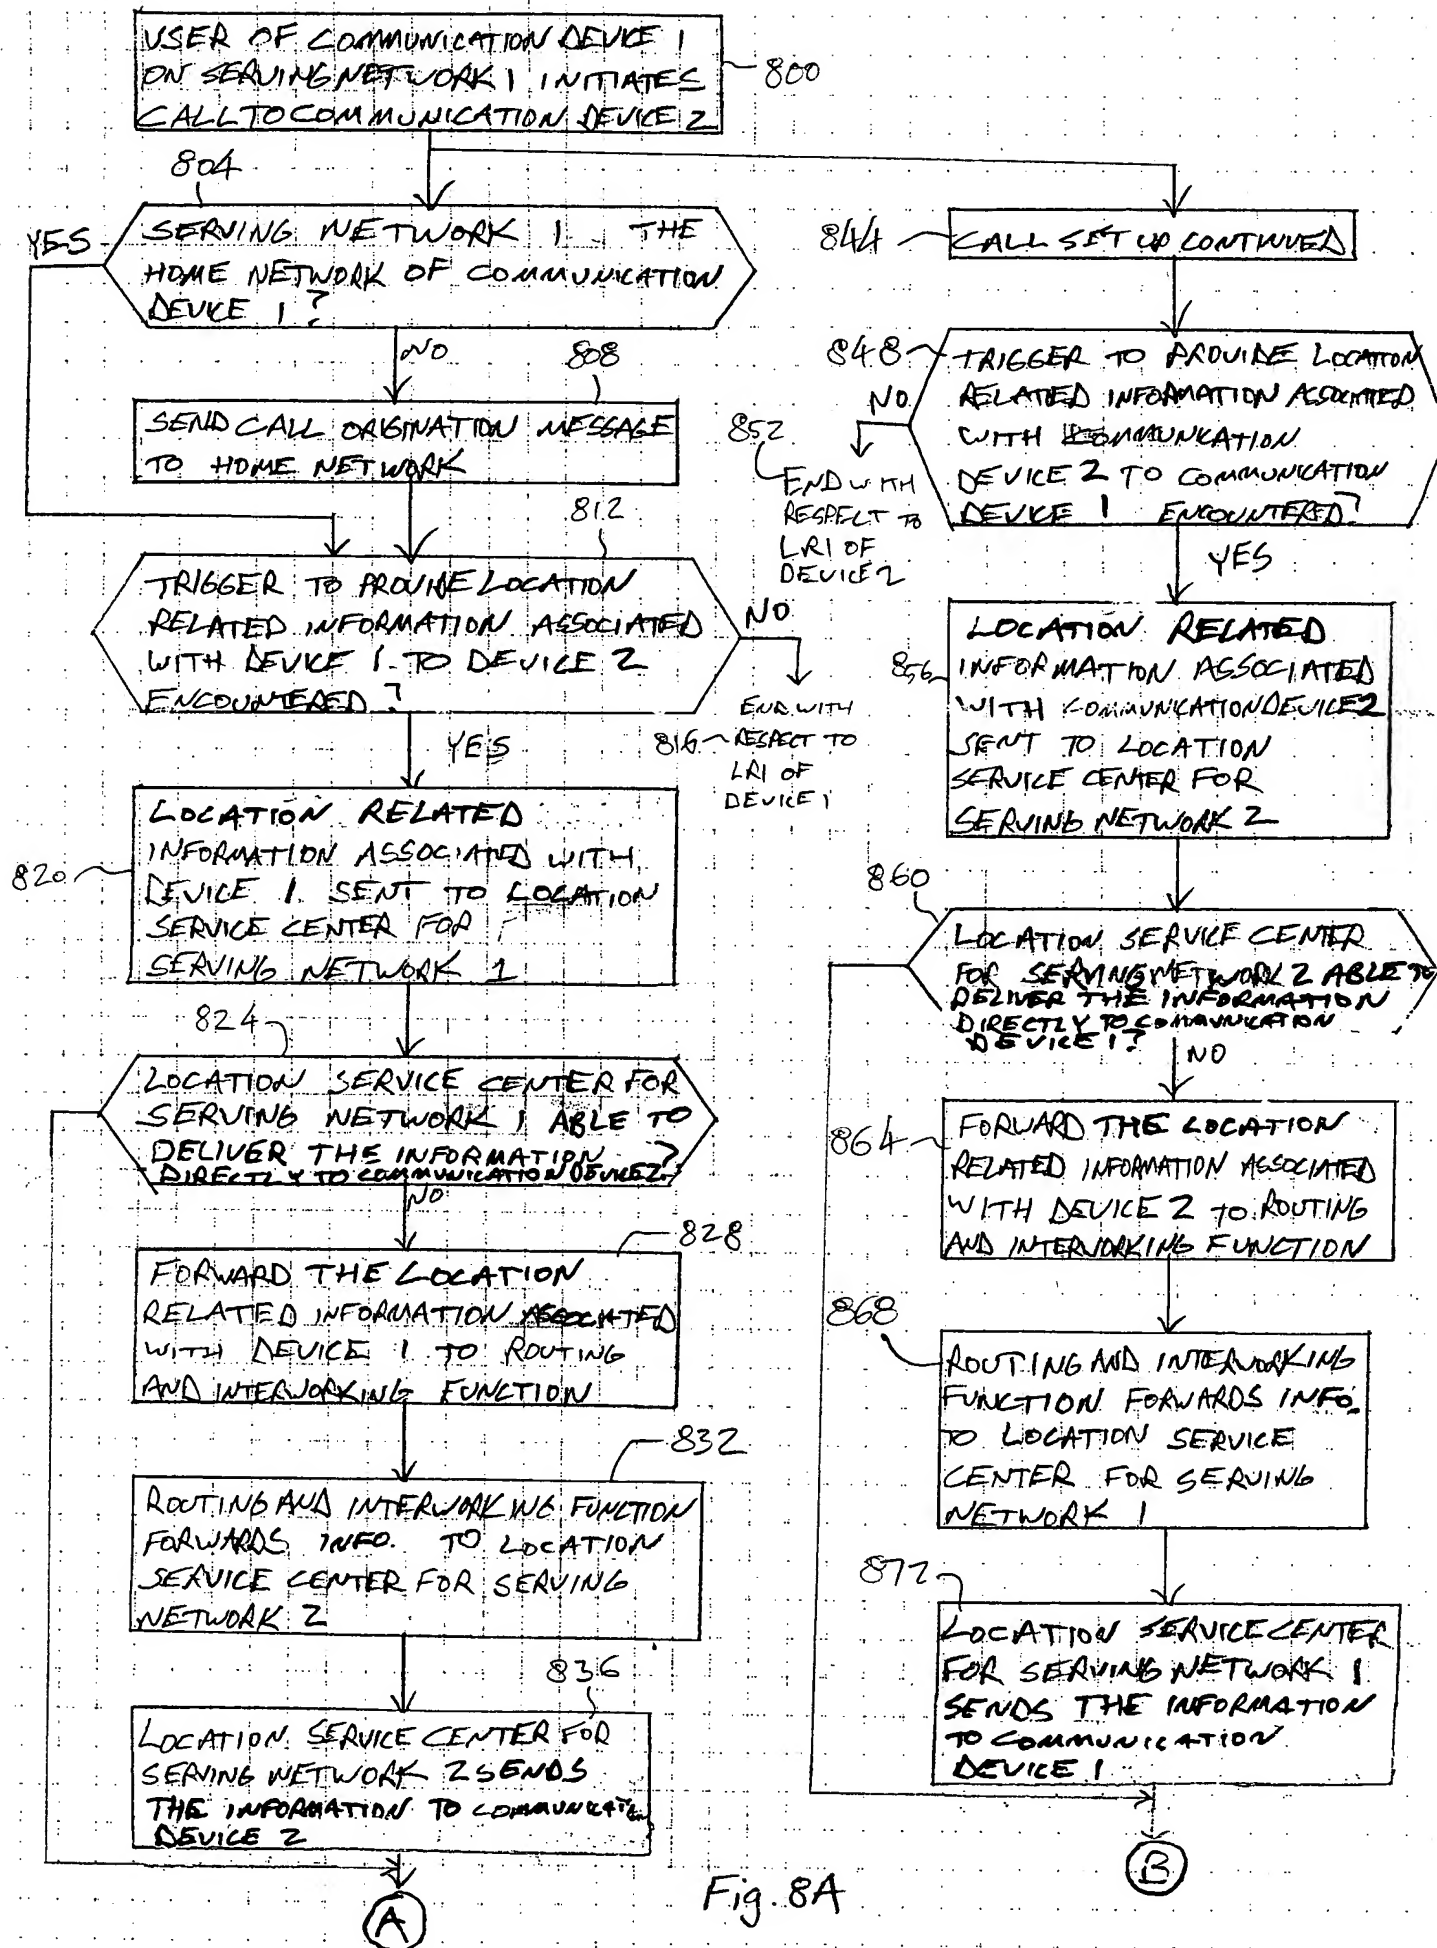 USER OF COMMUNICATION DEVICE 1
ON SERVING NETWORK 1 INITIATES
CALL TO COMMUNICATION DEVICE 2
800
804
YES
SERVING NETWORK 1 THE
HOME NETWORK OF COMMUNICATION
DEVICE 1?
NO
808
SEND CALL ORIGINATION MESSAGE
TO HOME NETWORK
812
TRIGGER TO PROVIDE LOCATION
RELATED INFORMATION ASSOCIATED
WITH DEVICE 1 TO DEVICE 2
ENCOUNTERED?
NO
816
END WITH
RESPECT TO
LRI OF
DEVICE 1
YES
820
LOCATION RELATED
INFORMATION ASSOCIATED WITH
DEVICE 1 SENT TO LOCATION
SERVICE CENTER FOR
SERVING NETWORK 1
824
LOCATION SERVICE CENTER FOR
SERVING NETWORK 1 ABLE TO
DELIVER THE INFORMATION
DIRECTLY TO COMMUNICATION DEVICE 2?
NO
828
FORWARD THE LOCATION
RELATED INFORMATION ASSOCIATED
WITH DEVICE 1 TO ROUTING
AND INTERWORKING FUNCTION
832
ROUTING AND INTERWORKING FUNCTION
FORWARDS INFO. TO LOCATION
SERVICE CENTER FOR SERVING
NETWORK 2
836
LOCATION SERVICE CENTER FOR
SERVING NETWORK 2 SENDS
THE INFORMATION TO COMMUNICATION
DEVICE 2
A
844
CALL SET UP CONTINUED
848
TRIGGER TO PROVIDE LOCATION
RELATED INFORMATION ASSOCIATED
WITH COMMUNICATION
DEVICE 2 TO COMMUNICATION
DEVICE 1 ENCOUNTERED?
NO
852
END WITH
RESPECT TO
LRI OF
DEVICE 2
YES
856
LOCATION RELATED
INFORMATION ASSOCIATED
WITH COMMUNICATION DEVICE 2
SENT TO LOCATION
SERVICE CENTER FOR
SERVING NETWORK 2
860
LOCATION SERVICE CENTER
FOR SERVING NETWORK 2 ABLE TO
DELIVER THE INFORMATION
DIRECTLY TO COMMUNICATION
DEVICE 1?
NO
864
FORWARD THE LOCATION
RELATED INFORMATION ASSOCIATED
WITH DEVICE 2 TO ROUTING
AND INTERWORKING FUNCTION
868
ROUTING AND INTERWORKING
FUNCTION FORWARDS INFO.
TO LOCATION SERVICE
CENTER FOR SERVING
NETWORK 1
872
LOCATION SERVICE CENTER
FOR SERVING NETWORK 1
SENDS THE INFORMATION
TO COMMUNICATION
DEVICE 1
B
Fig. 8A